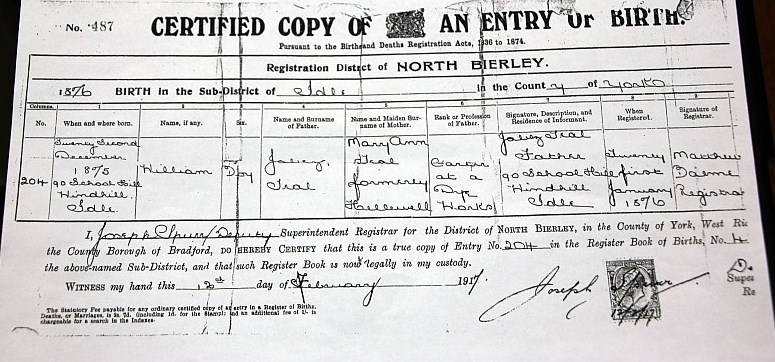 No. 487
CERTIFIED COPY OF AN ENTRY OF BIRTH.
Pursuant to the Births and Deaths Registration Acts, 1836 to 1874.
Registration District of NORTH BIERLEY.
1876 BIRTH in the Sub-District of Idle in the County of York
Columns. 1 2 3 4 5 6 7 8 9
No. When and where born. Name, if any. Sex. Name and Surname of Father. Name and Maiden Surname of Mother. Rank or Profession of Father. Signature, Description, and Residence of Informant. When Registered. Signature of Registrar.
204 Twenty Second December 1875 90 School Hill Windhill Idle William Boy Jabez Teal Mary Ann Teal formerly Hallewell at a Dye Works Jabez Teal Father 90 School Hill Windhill Idle Twenty first January 1876 Matthew Registrar
I, Joseph Spurr, Deputy Superintendent Registrar for the District of NORTH BIERLEY, in the County of York, West Ri
the County Borough of Bradford, DO HEREBY CERTIFY that this is a true copy of Entry No. 204 in the Register Book of Births, No. 4
the above-named Sub-District, and that such Register Book is now legally in my custody.
WITNESS my hand this 12th day of February 1917.
Joseph Spurr
Supe
Re
The Statutory Fee payable for any ordinary certified copy of an entry in a Register of Births,
Deaths, or Marriages, is 2s. 7d. (including 1d. for the Stamp); and an additional fee of 1/- is
chargeable for a search in the Indexes.